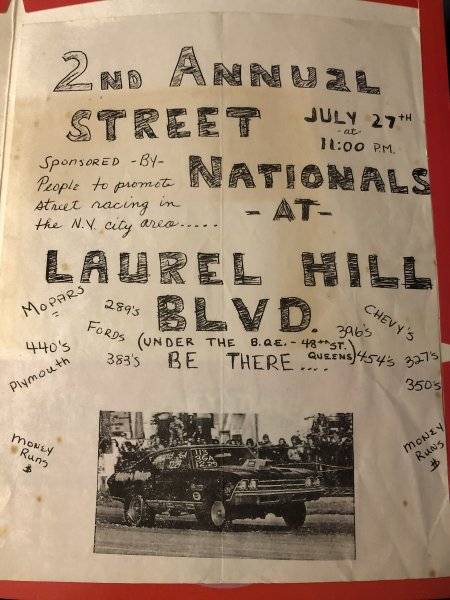 2ND ANNUAL
STREET
JULY 27TH
-at-
11:00 P.M.
NATIONALS
Sponsored -By-
People to promote
street racing in
the N.Y. city area.....
- AT -
LAUREL HILL
BLVD.
(UNDER THE B.Q.E. - 48TH ST. QUEENS)
BE THERE....
MOPARS
289's
FORDS
440's
383's
Plymouth
CHEVY'S
396's
454's
327's
350's
MONEY
RUNS
$
MONEY
RUNS
$